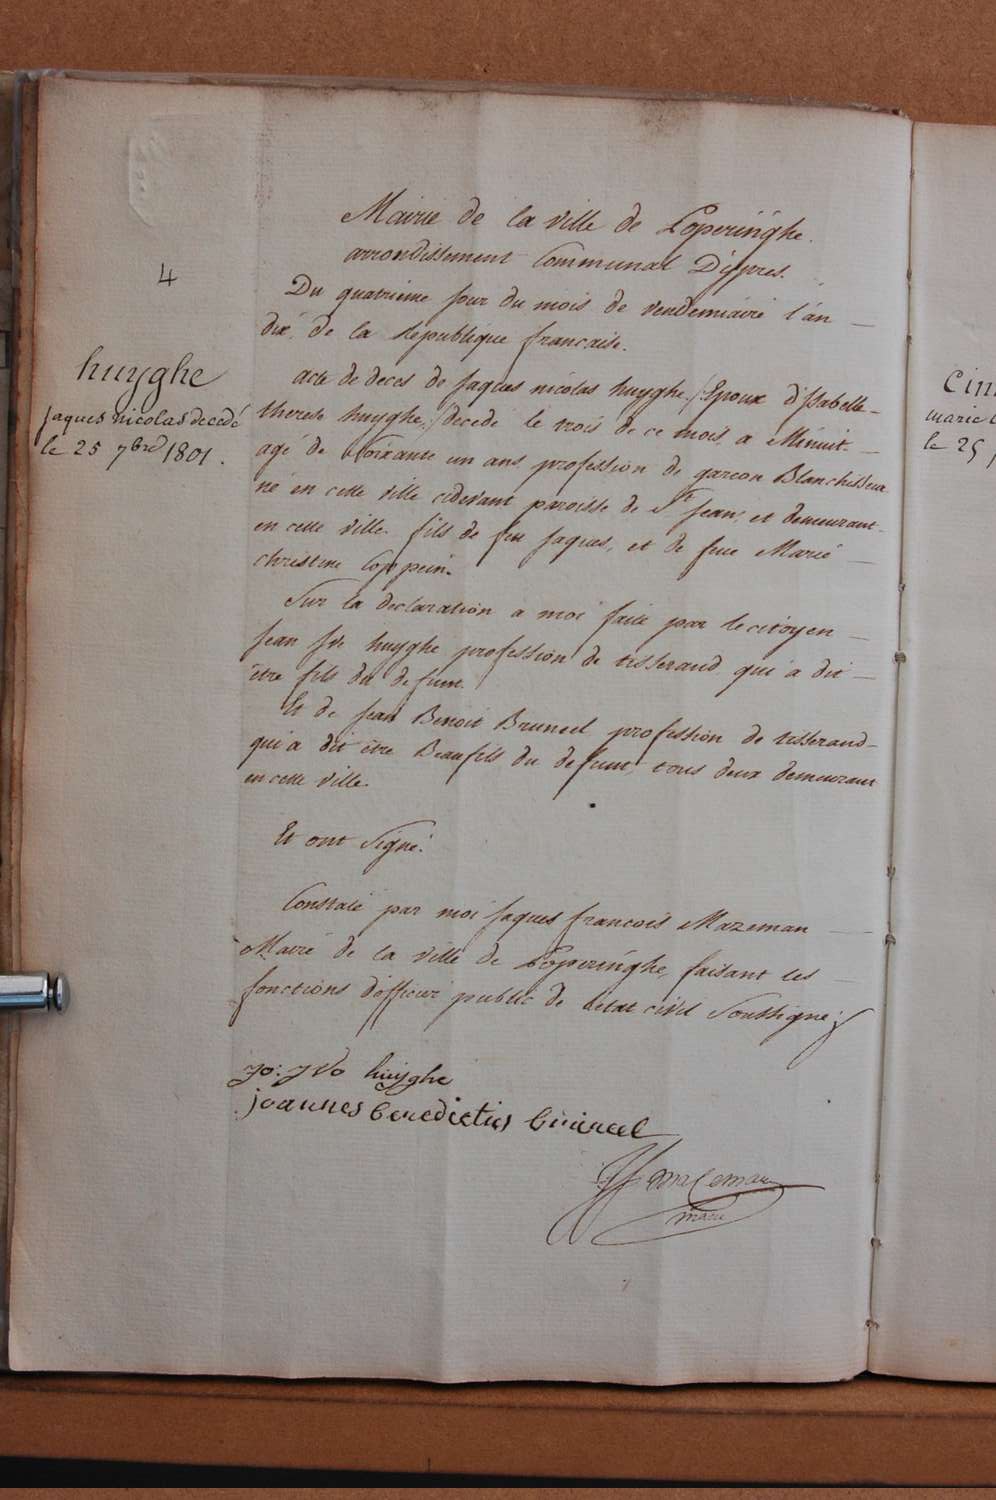 4
huyghe
jaques nicolas decedé
le 25 7bre 1801.
Mairie de la ville de Poperinghe.
arrondissement Communal D'ijpres.
Du quatrieme jour du mois de vendemiaire l'an
dix, de la Republique francaise.
acte de deces de jaques nicolas huyghe, (Epoux d'jsabelle
therese huyghe,) decedé le trois de ce mois, a Minuit
agé de Soixante un ans, profession de garcon Blanchisseur
né en cette ville cidevant paroisse de St jean, et demeurant
en cette ville. fils de feu jaques, et de feue Marie
christine Coppein.
Sur la declaration a moi faite par le citoyen
jean huyghe profession de tisserand qui a dit
être fils du defunt.
Et de jean Benoit Bruneel profession de tisserand
qui a dit être Beaufils du defunt, tous deux demeurant
en cette ville.
Et ont Signé.
Constaté par moi jaques francois Mazeman
Maire de la ville de Poperinghe, faisant les
fonctions d'officier public de letat civil Soussigné;
jo: jvo huyghe
joannes benedictus bruneel
JF Mazeman
maire
cin
marie
le 25